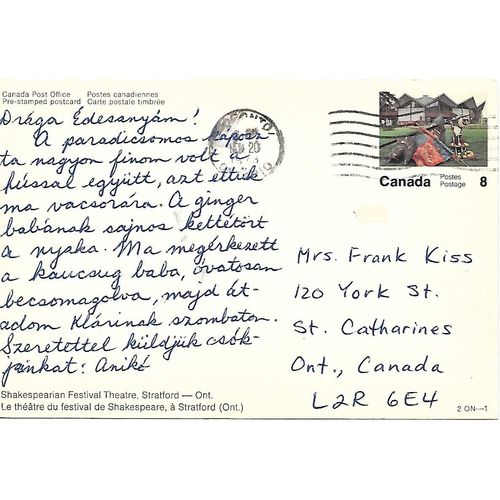 Canada Post Office Postes canadiennes
Pre-stamped postcard Carte postale timbrée
Drága Édesanyám!
A paradicsomos káposz-
ta nagyon finom volt a
hússal együtt, azt ettük
ma vacsorára. A ginger
babának sajnos kettétört
a nyaka. Ma megérkezett
a kaucsug baba, óvatosan
becsomagolva, majd át-
adom Klárinak szombaton.
Szeretettel küldjük csók-
jainkat: Anikó
Shakespearian Festival Theatre, Stratford — Ont.
Le théâtre du festival de Shakespeare, à Stratford (Ont.)
TORONTO
20
Canada Postes Postage 8
Mrs. Frank Kiss
120 York St.
St. Catharines
Ont., Canada
L2R 6E4
2 ON—1